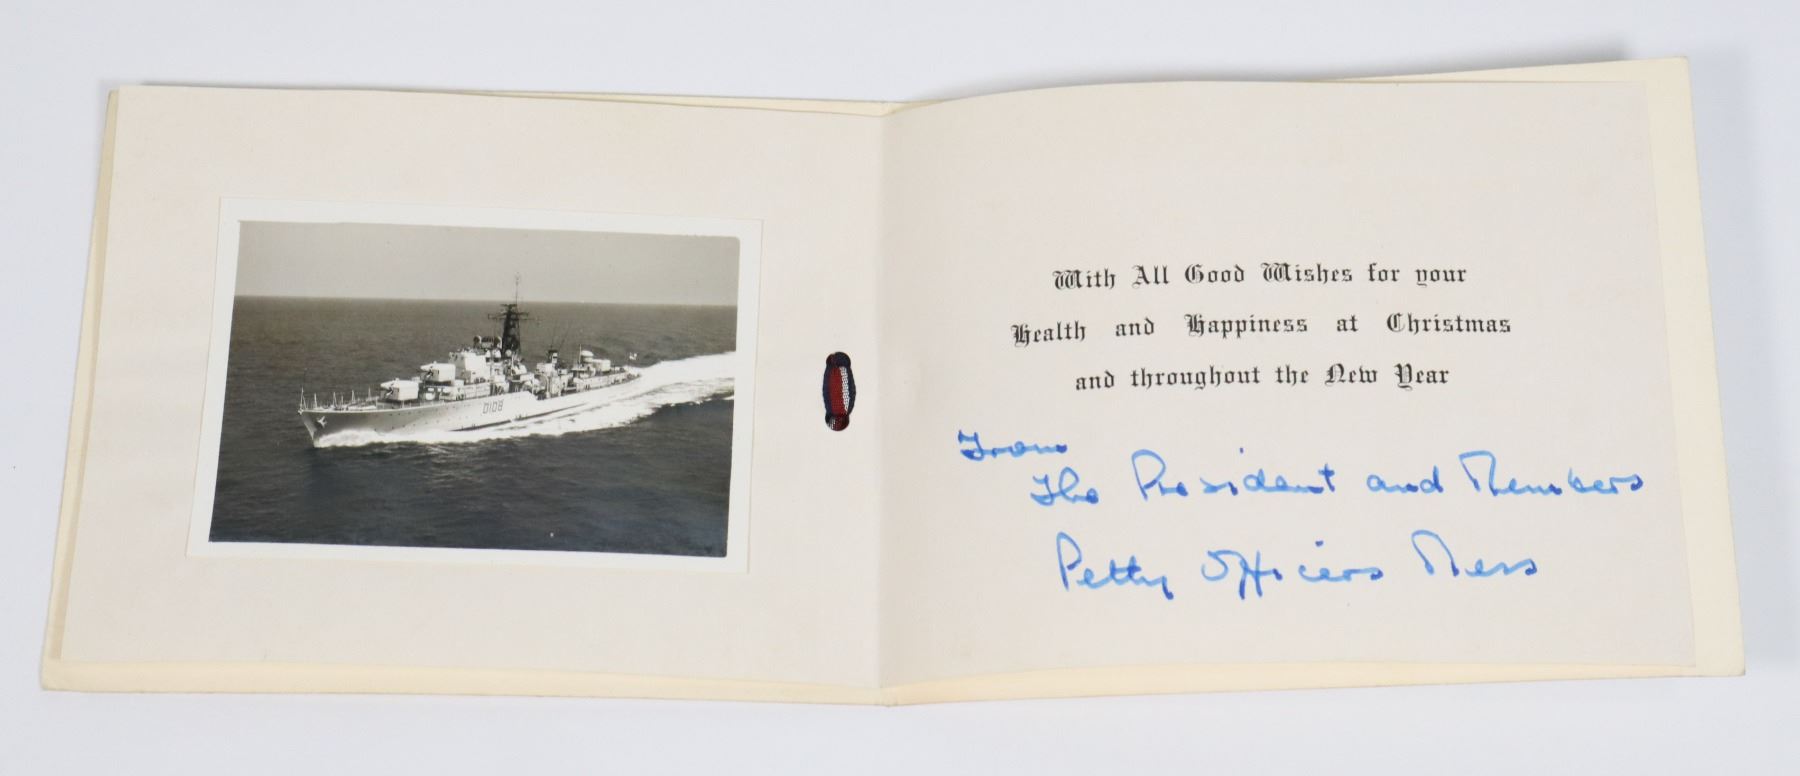 D108
With All Good Wishes for your
Health and Happiness at Christmas
and throughout the New Year
From
The President and Members
Petty Officers Mess